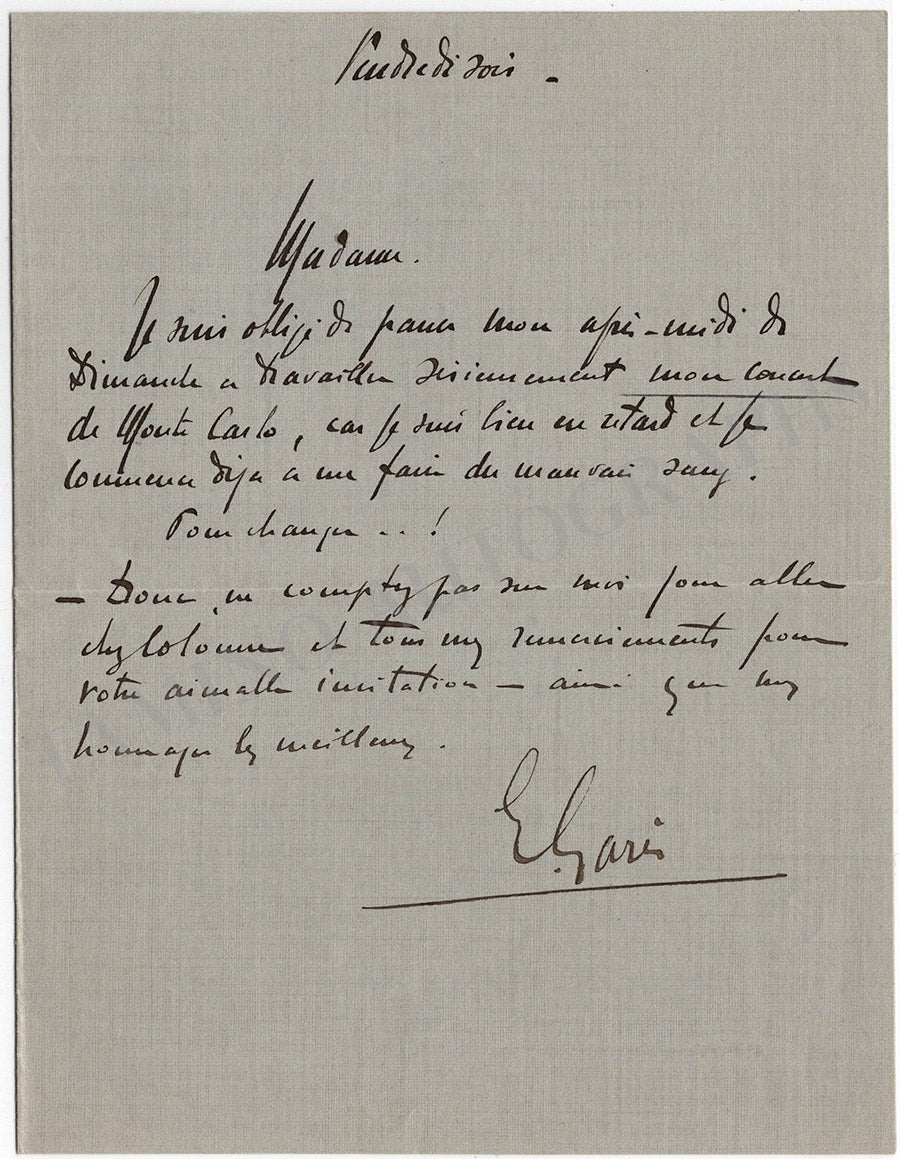 Vendredi soir -
Madame.
Je suis obligé de passer mon après-midi de
Dimanche a travailler sérieusement mon concert
de Monte Carlo, car je suis bien en retard et je
commence déja a me faire du mauvais sang.
Pour changer . . !
- Donc, ne comptez pas sur moi pour aller
chez Colonne et tous mes remerciements pour
votre aimable invitation - ainsi que mes
hommages les meilleurs.
E.